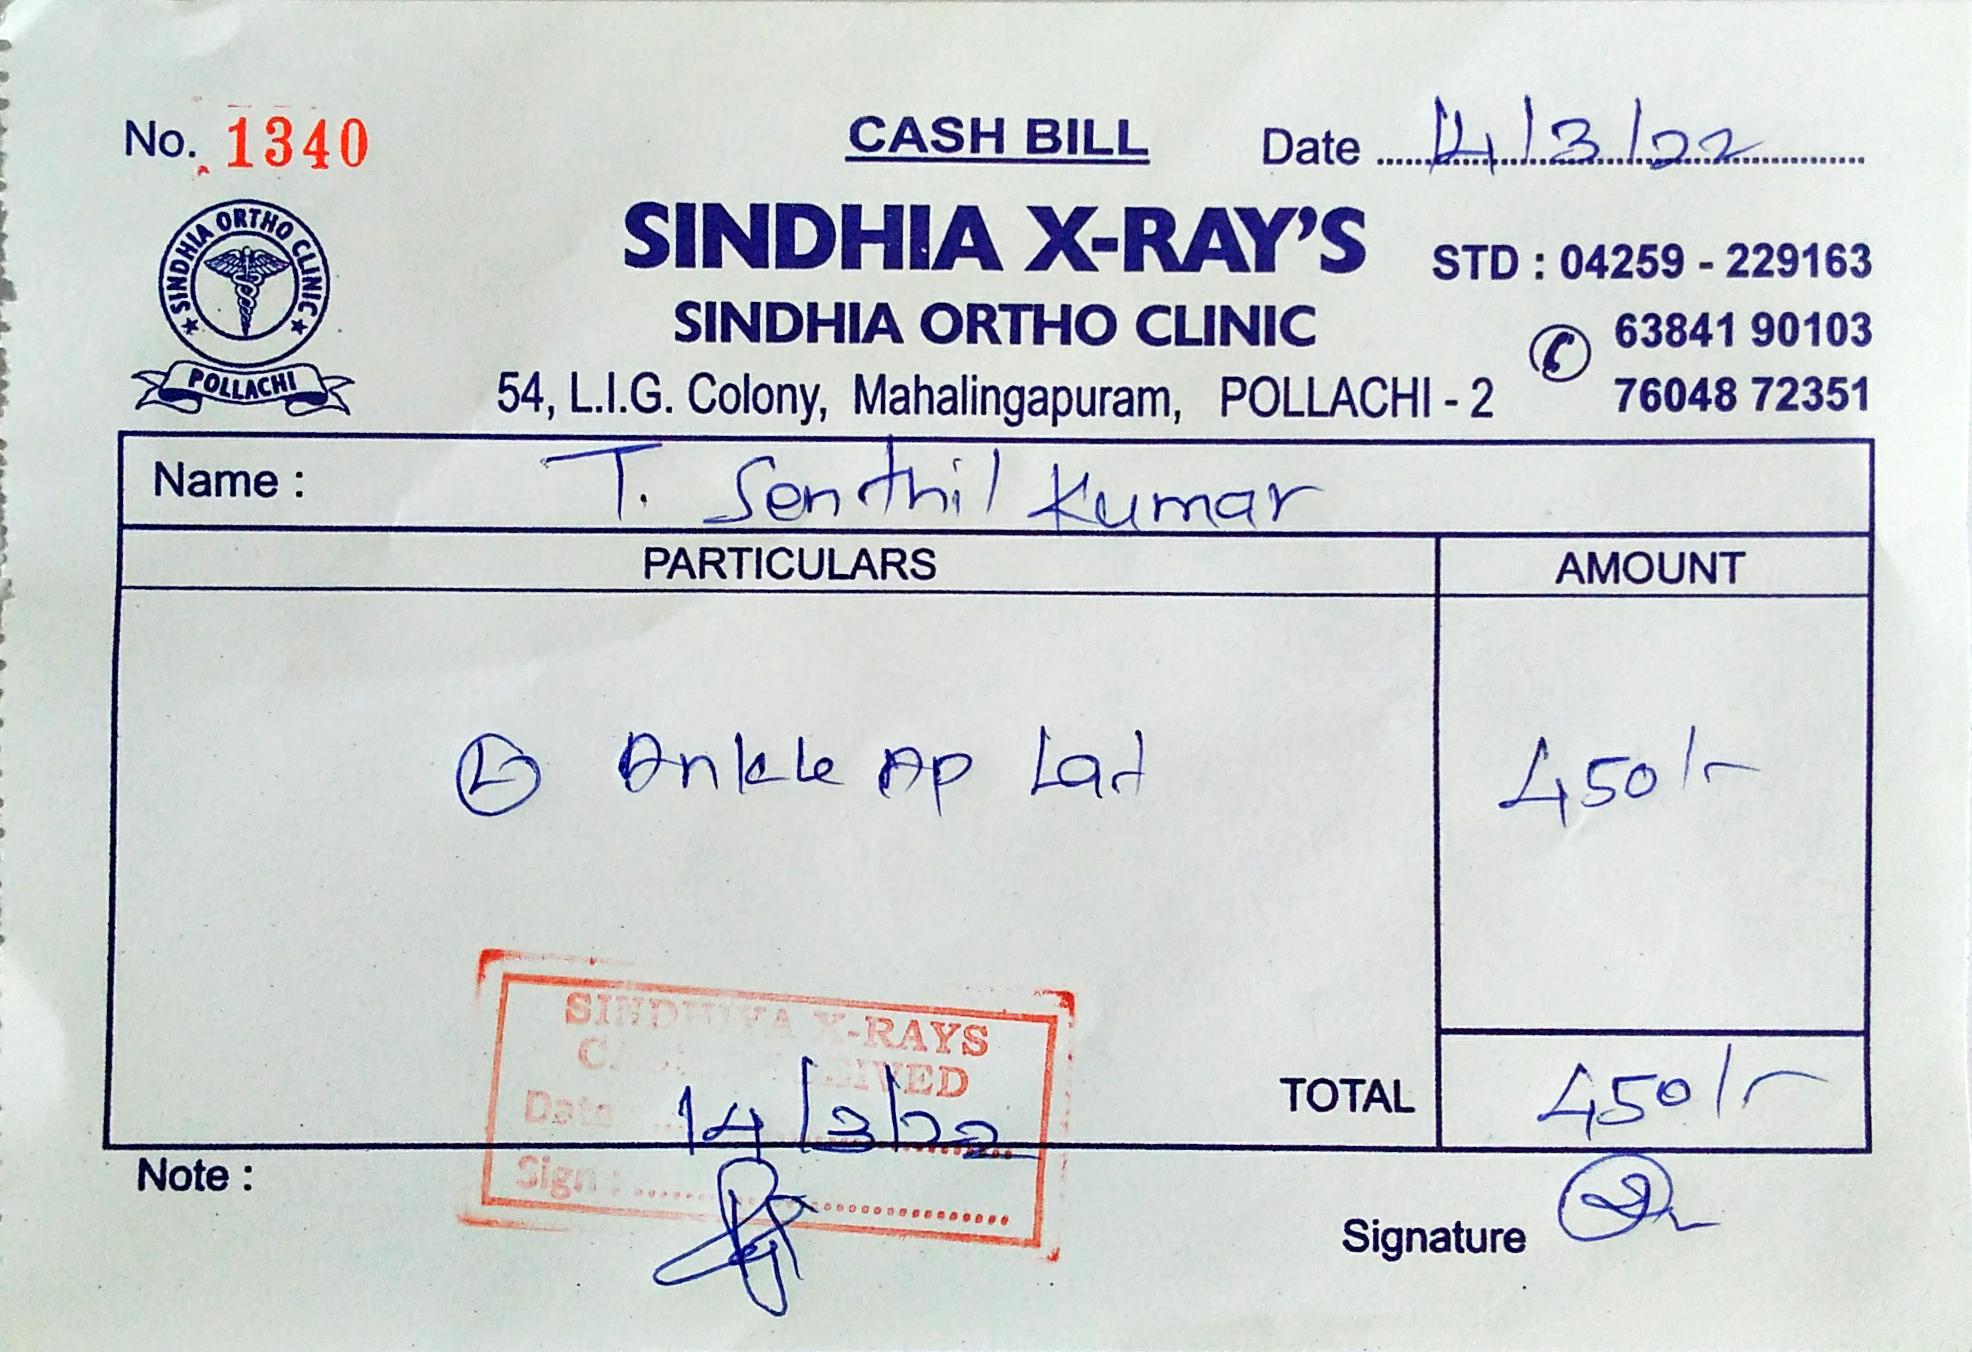 No. 1340
CASH BILL
Date 14/3/22
SINDHIA ORTHO CLINIC
POLLACHI
SINDHIA X-RAY'S
SINDHIA ORTHO CLINIC
54, L.I.G. Colony, Mahalingapuram, POLLACHI - 2
STD : 04259 - 229163
63841 90103
76048 72351
Name : T. Senthil Kumar
PARTICULARS AMOUNT
Ⓛ Ankle AP Lat 450/-
SINDHIYA X-RAYS
CASH RECEIVED
Date 14/3/22
Sign :
TOTAL 450/-
Note :
Signature